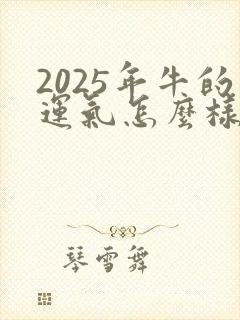 2025年牛的
運氣怎麼樣
琴雪舞